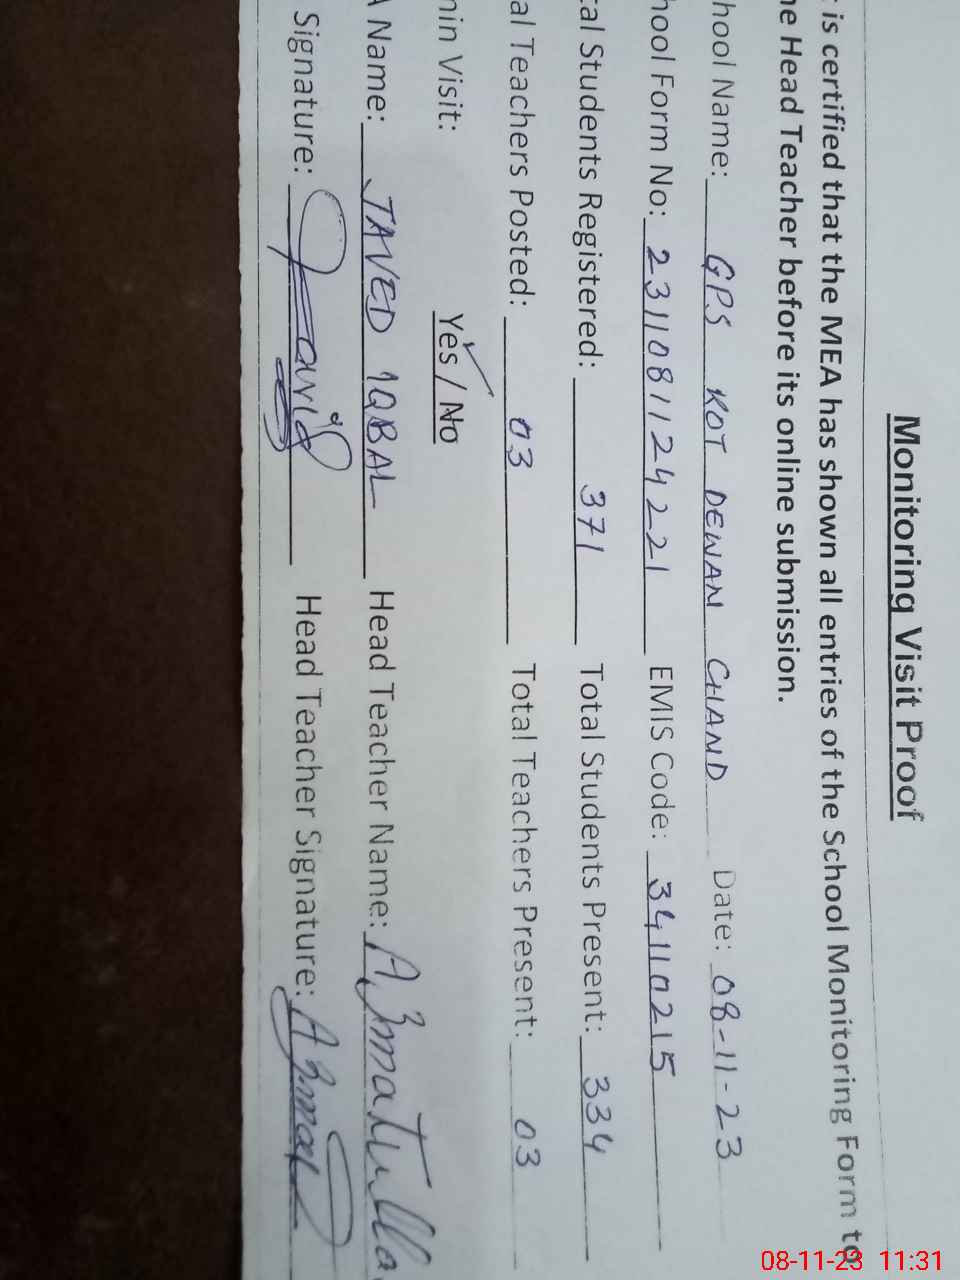 Monitoring Visit Proof
is certified that the MEA has shown all entries of the School Monitoring Form to
he Head Teacher before its online submission.
hool Name: GPS KOT DEWAN CHAND Date: 08-11-23
hool Form No: 2311081124221 EMIS Code: 34110215
tal Students Registered: 371 Total Students Present: 334
al Teachers Posted: 03 Total Teachers Present: 03
min Visit: Yes / No
A Name: JAVED IQBAL Head Teacher Name: Azmatulla
Signature: Javid Head Teacher Signature:
08-11-23 11:31